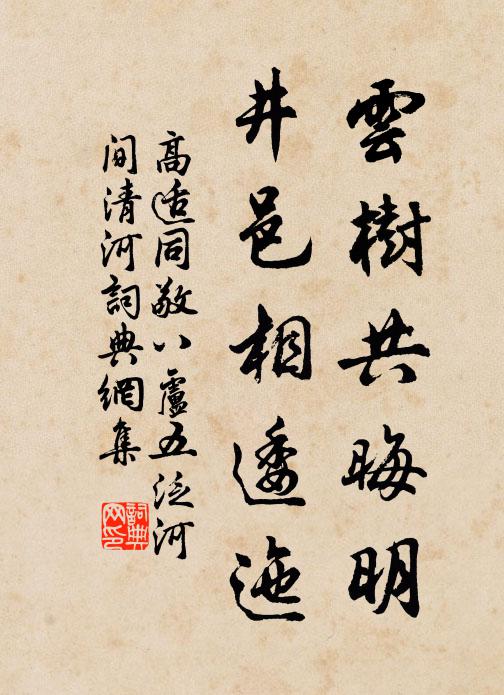 雲樹共晦明
井邑相逶迤
高适同敬八盧五泛河
間清河詞典網集
詞典网印